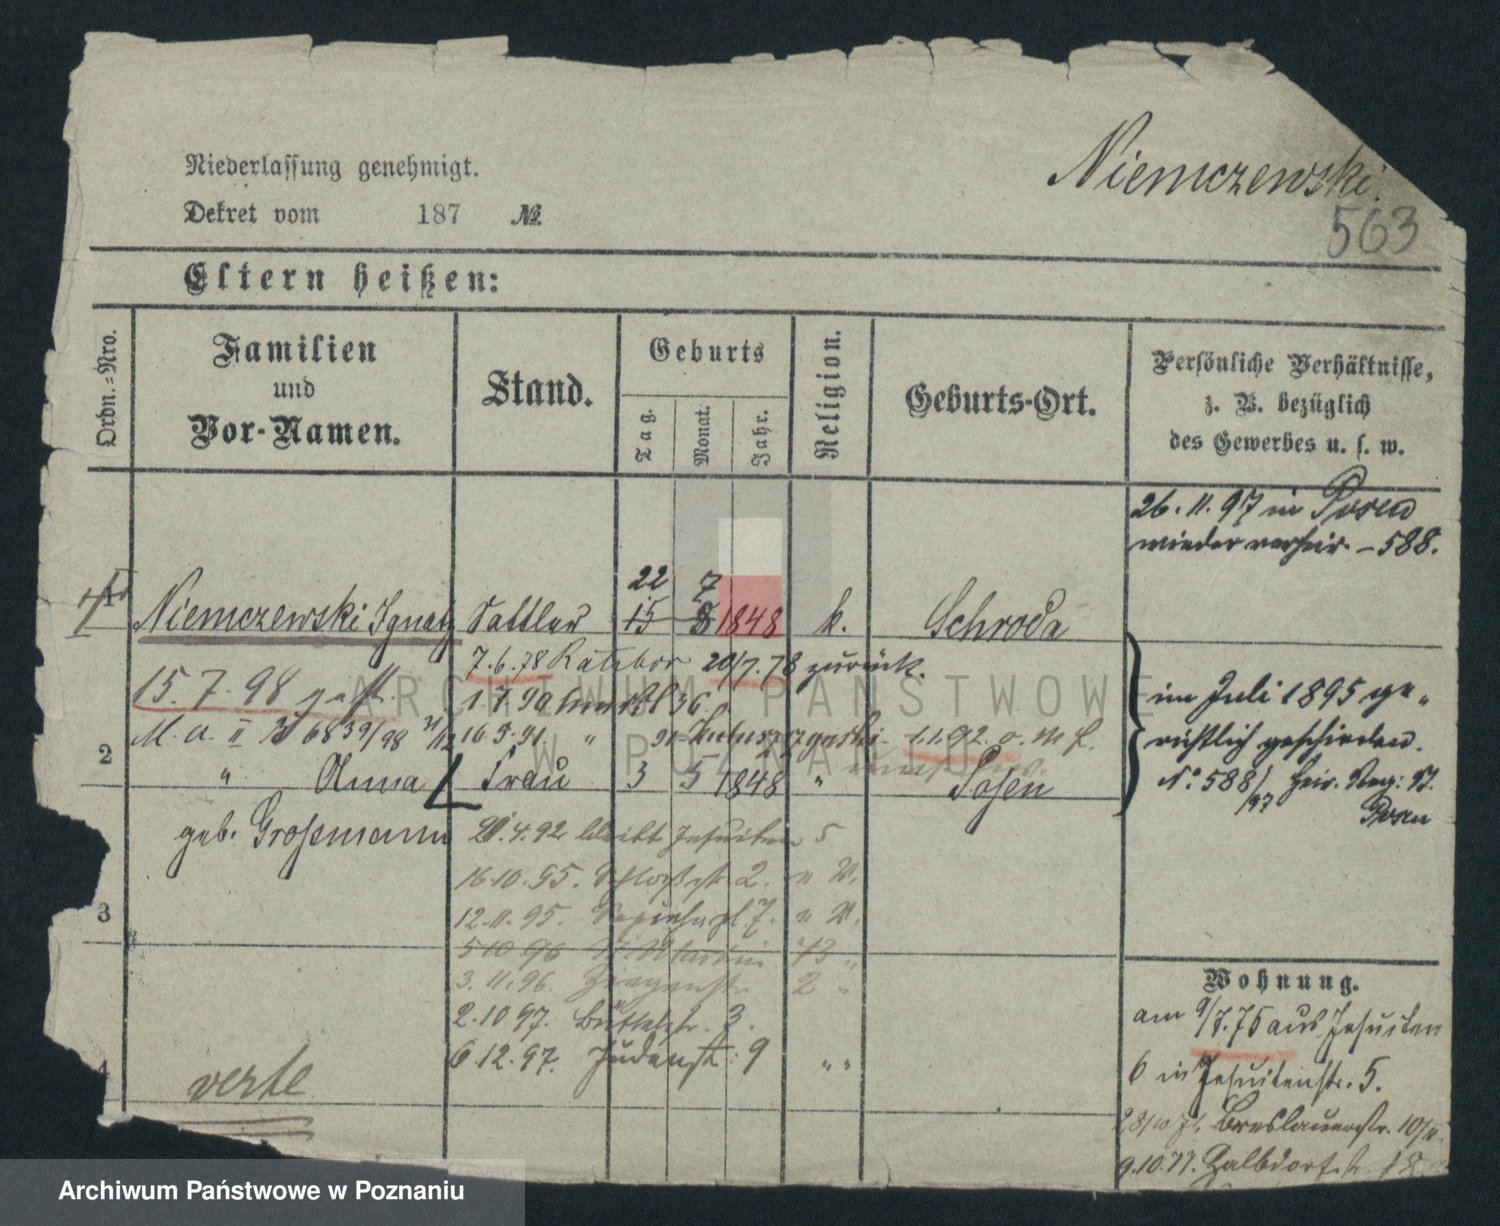 Niemczewski.
563
Niederlassung genehmigt.
Dekret vom 187 №
Eltern heißen:
Ordn.=Nro.
Familien
und
Vor-Namen.
Stand.
Geburts
Tag.
Monat.
Jahr.
Religion.
Geburts-Ort.
Persönliche Verhältnisse,
z. B. bezüglich
des Gewerbes u. s. w.
26. 11. 97 in Posen
wieder verheir. – 588.
22 7
1 Niemczewski Ignatz Sattler 15 8 1848 k. Schroda
7. 6. 78 Ratibor 20/7. 78 zurück.
15. 7. 98 gest.
1. 7. 90
im Juli 1895 ge-
richtlich geschieden.
M. a. II 6839/98
16. 9. 91 " 1.1.92
2 " Anna Frau 3 5 1848 " Posen
No. 588/97 Heir. Reg: St.
Posen
geb. Grossmann
21. 4. 92 bleibt Jesuiten 5
16.10.95. Schloßstr 2.
12.11.95. Sapiehapl 7.
3
5 10 96 St Martin 73 "
3. 11. 96. Ziegenstr. 2 "
2. 10 97. Büttelstr. 3.
6. 12. 97. Judenstr: 9 " "
4
verte
Wohnung.
am 9/7. 75 aus Jesuiten
6 in Jesuitenstr. 5.
28/10 Breslauerstr. 10/
9. 10. 77. Halbdorfstr 18
ARCHIWUM PAŃSTWOWE
W POZNANIU
Archiwum Państwowe w Poznaniu